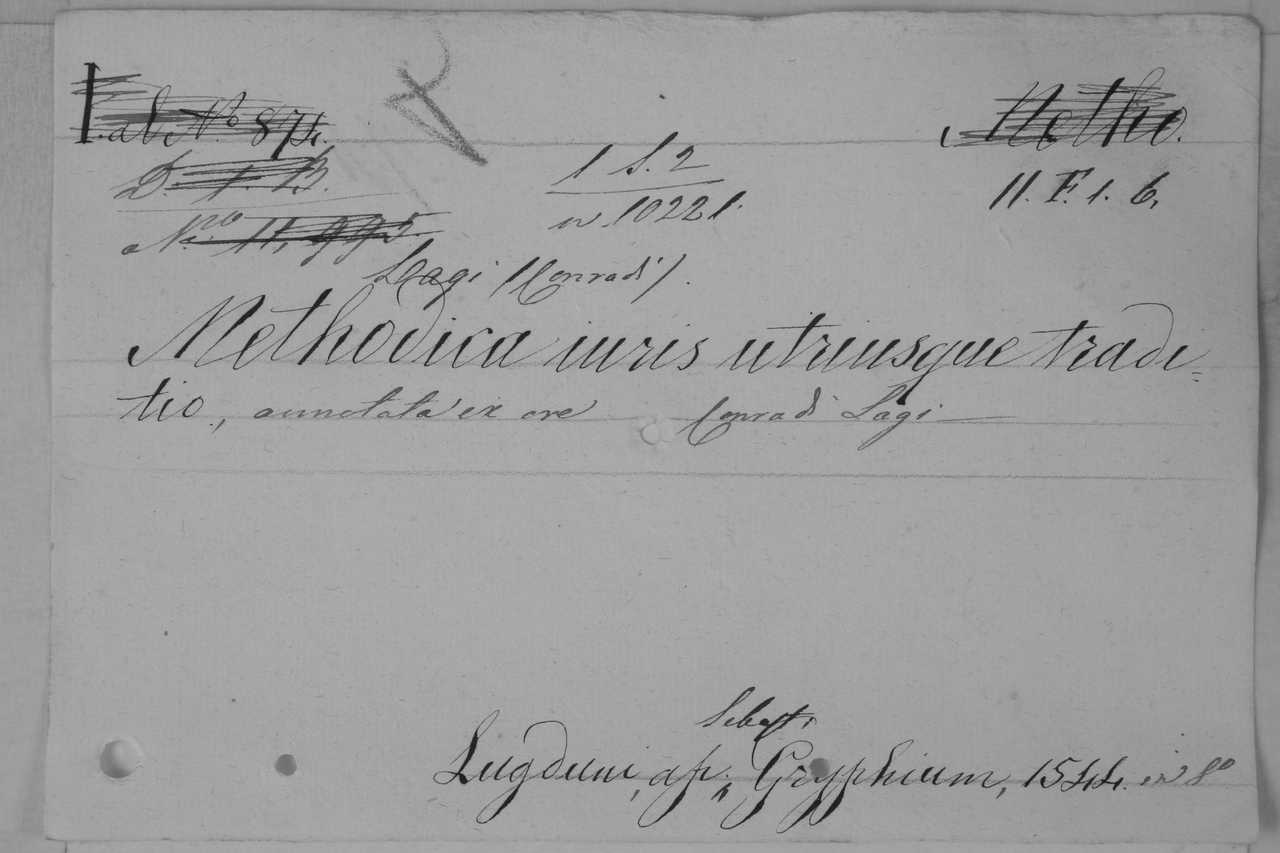 I. ab No 874.
Metho.
D. 1. B.
1 S. 2
11. F. 1. 6.
No. 11,995.
n 10221.
Lagi (Conradi).
Methodica iuris utriusque tradi=
tio, annotata ex ore Conradi Lagi
Sebast.
Lugduni, ap. Gryphium, 1544. in 8o